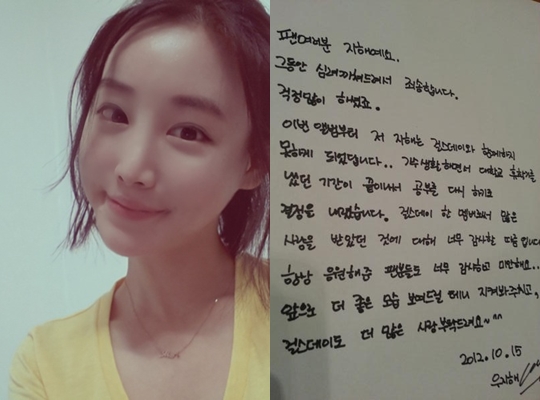 팬여러분 지해예요..
그동안 심려끼쳐드려서 죄송합니다.
걱정많이 하셨죠.
이번 앨범부터 저 지해는 걸스데이와 함께하지
못하게 되었답니다.. 가수생활하면서 대학교 휴학계를
냈던 기간이 끝이나서 공부를 다시 하기로
결정을 내렸습니다. 걸스데이 한 멤버로써 많은
사랑을 받았던 것에 대해 너무 감사할 따름입니다
항상 응원해준 팬분들도 너무 감사하고 미안해요..
앞으로 더 좋은 모습 보여드릴 테니 지켜봐주시고,
걸스데이도 더 많은 사랑 부탁드려요~^^
2012.10.15
우지해